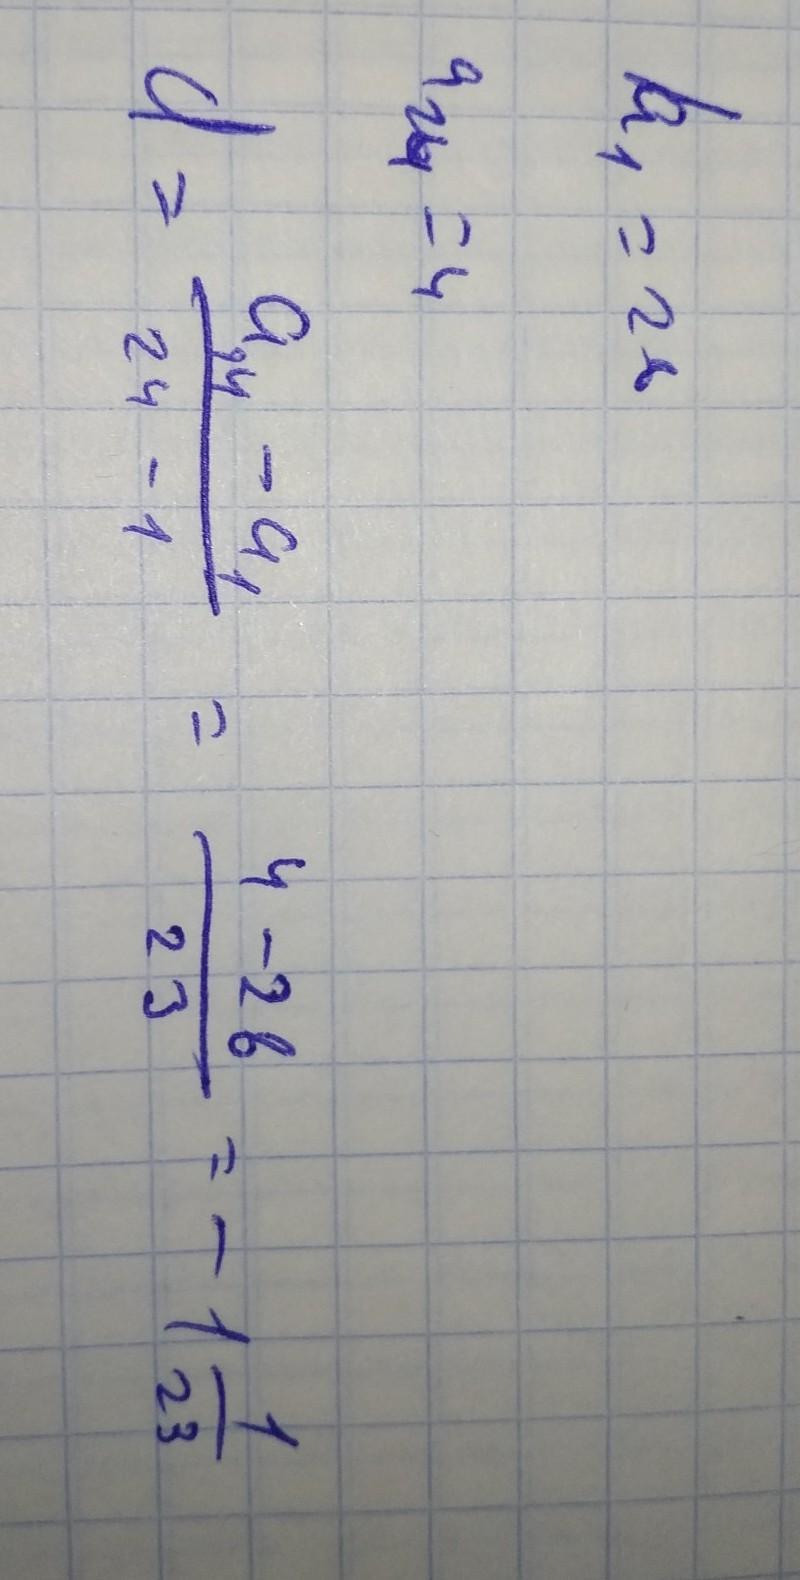 a₁ = 28
a₂₄ = 4
d = (a₂₄ - a₁)/(24 - 1) = (4 - 28)/23 = -1 1/23